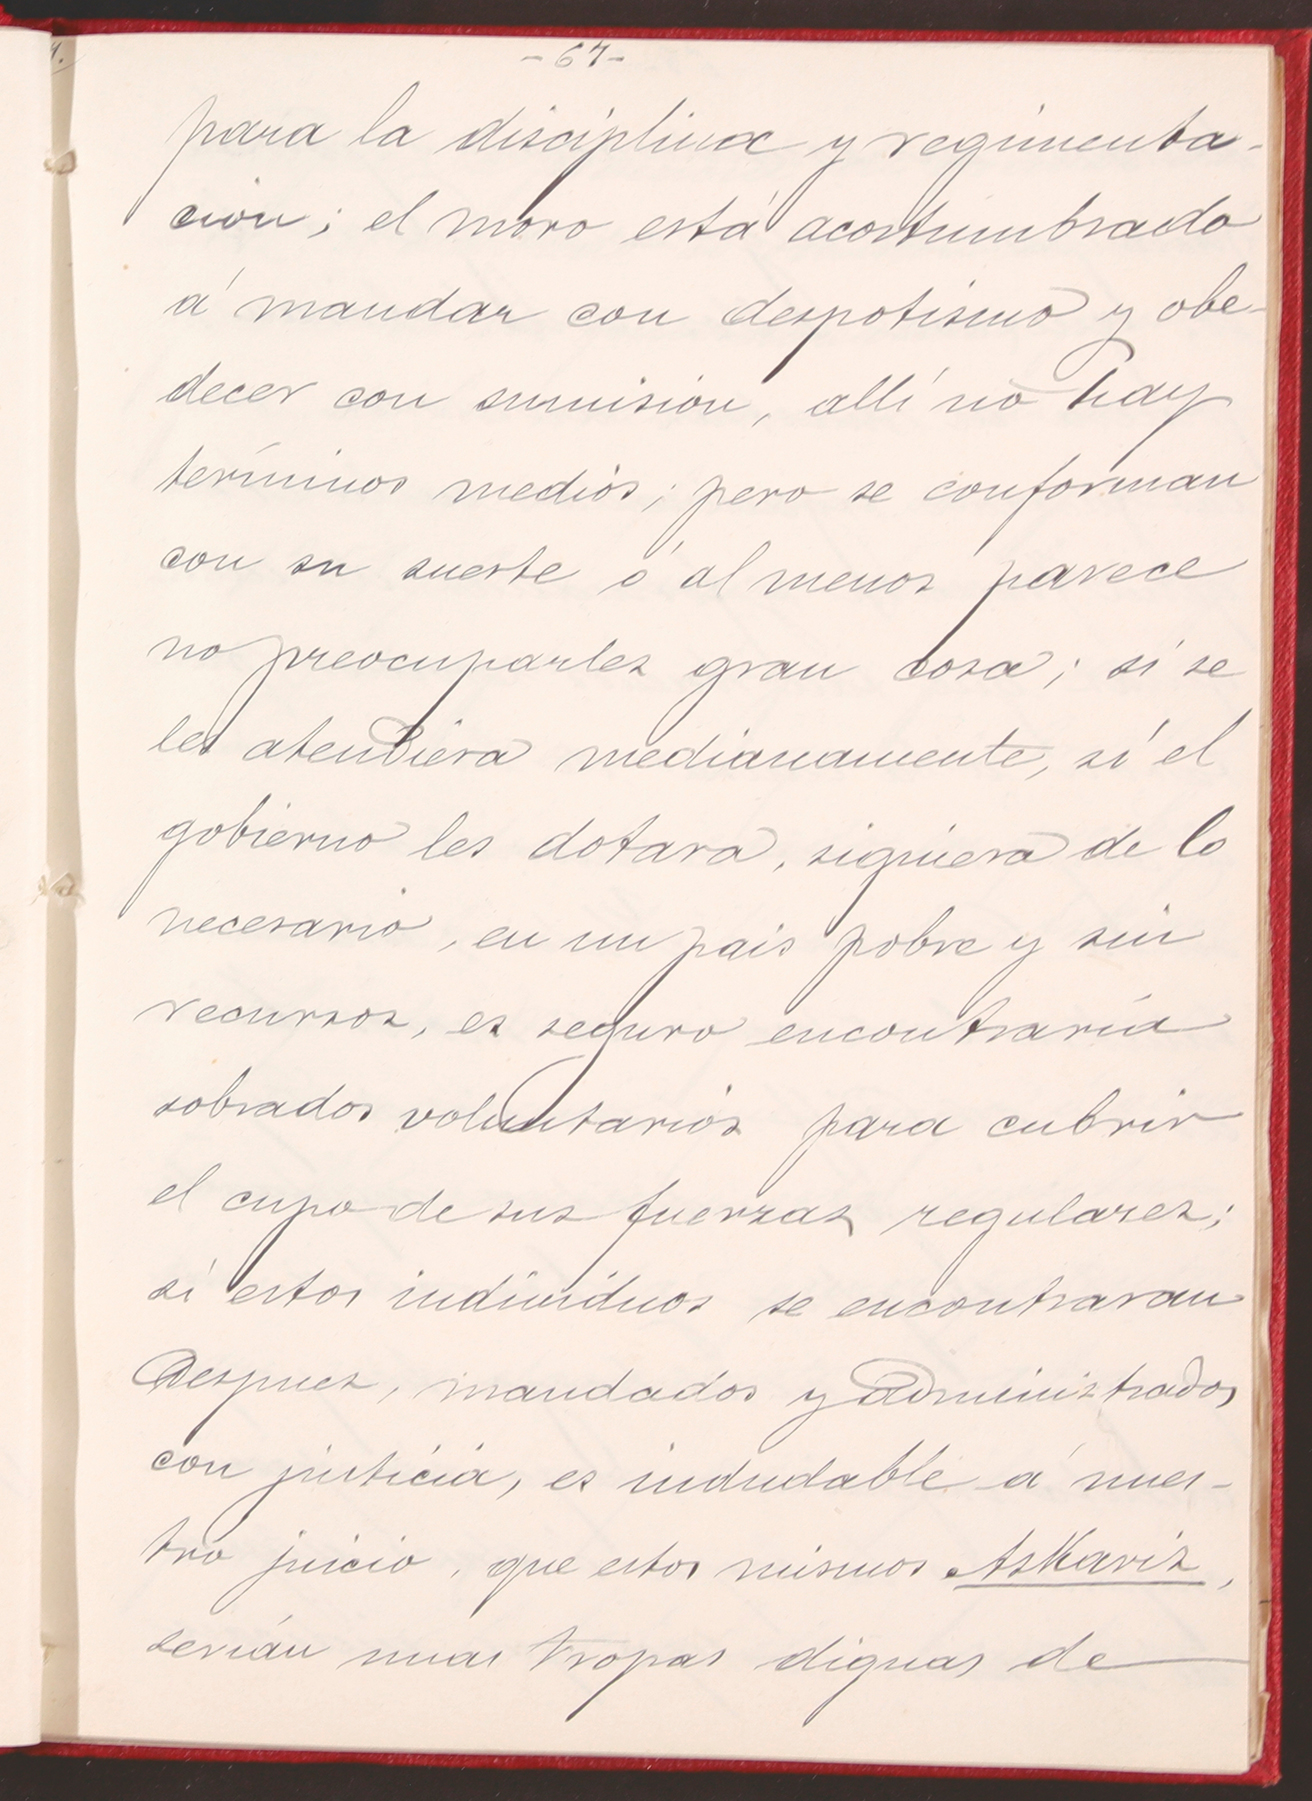 -67-
para la disciplina y regimenta-
ción; el moro está acostumbrado
á mandar con despotismo y obe-
decer con sumisión, allí no hay
términos medios; pero se conforman
con su suerte ó al menos parece
no preocuparles gran cosa; si se
les atendiera medianamente, sí el
gobierno les dotara, siquiera de lo
necesario, en un pais pobre y sin
recursos, es seguro encontraría
sobrados voluntarios para cubrir
el cupo de sus fuerzas regulares;
sí estos individuos se encontraran
despues, mandados y administrados
con justicia, es indudable á nues-
tro juicio, que estos mismos Askaris,
serían unas tropas dignas de